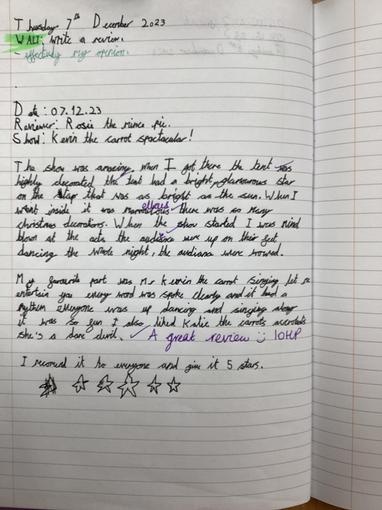 Thursday 7th December 2023
WALT: write a review.
- effectivly my opinion.
Date: 07.12.23
Reviewer: Rosie the mince pie.
Show: Kevin the carrot spectacular!
The show was amazing when I got there the tent was
highly decorated the tent had a bright, glamourous star
on the flap that was as bright as the sun. When I
went inside it was marvellous there was so many
christmas decorators. When the show started I was mind
blown at the acts the audience were up on their feet
dancing the whole night, the audiana were wowed.
My favourite part was Mr Kevin the carrot singing let me
entertain you every word was spoke clearly and it had a
rythem everyone was up dancing and singing along
it was so fun I also liked Katie the carrots acrobats
she's a dare devil. A great review 10HP
I recomed it to everyone and give it 5 stars.